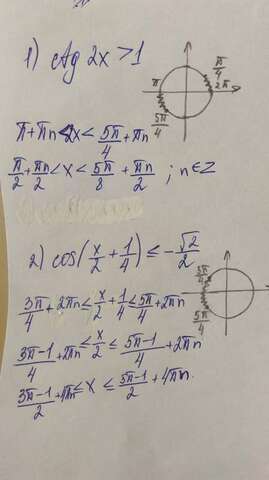 1) ctg 2x > 1
π/4
π
2π
5π/4
π + πn < 2x < 5π/4 + πn
π/2 + πn/2 < x < 5π/8 + πn/2 ; n∈Z
2) cos(x/2 + 1/4) ≤ -√2/2
3π/4 + 2πn ≤ x/2 + 1/4 ≤ 5π/4 + 2πn
5π/4
3π-1/4 + 2πn ≤ x/2 ≤ 5π-1/4 + 2πn
3π-1/2 + 4πn ≤ x ≤ 5π-1/2 + 4πn.